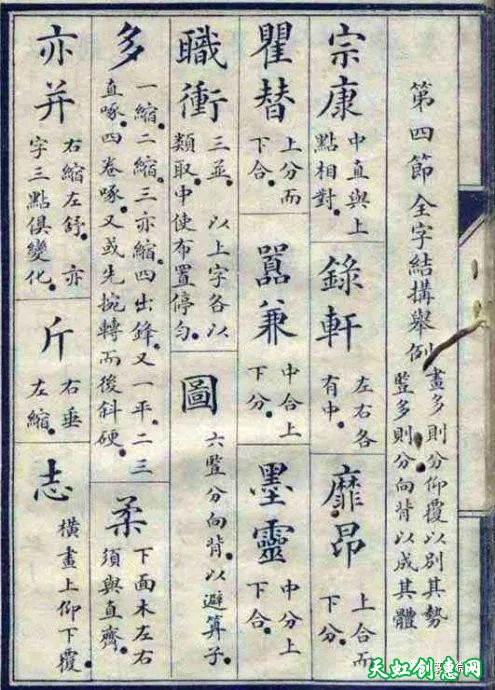 第四節 全字結搆舉例 畫多則分仰覆以別其勢
豎多則分向背以成其體
宗康 中直與上
點相對
錄軒 左右各
有中
靡昂 上合而
下分
瞿替 上分而
下合
嚣兼 中合上
下分
墨靈 中分上
下合
職衝 三並 以上字各以
類取中使布置停勻
圖 六豎分向背以避算子
多 一縮二縮三亦縮四出鋒又一平二三
直啄四卷啄又或先捥轉而後斜硬
柔 下面木左右
須與直齊
亦并 右縮左舒 亦
字三點俱變化
斤 右垂
左縮
志 橫畫上仰下覆
天虹创意网